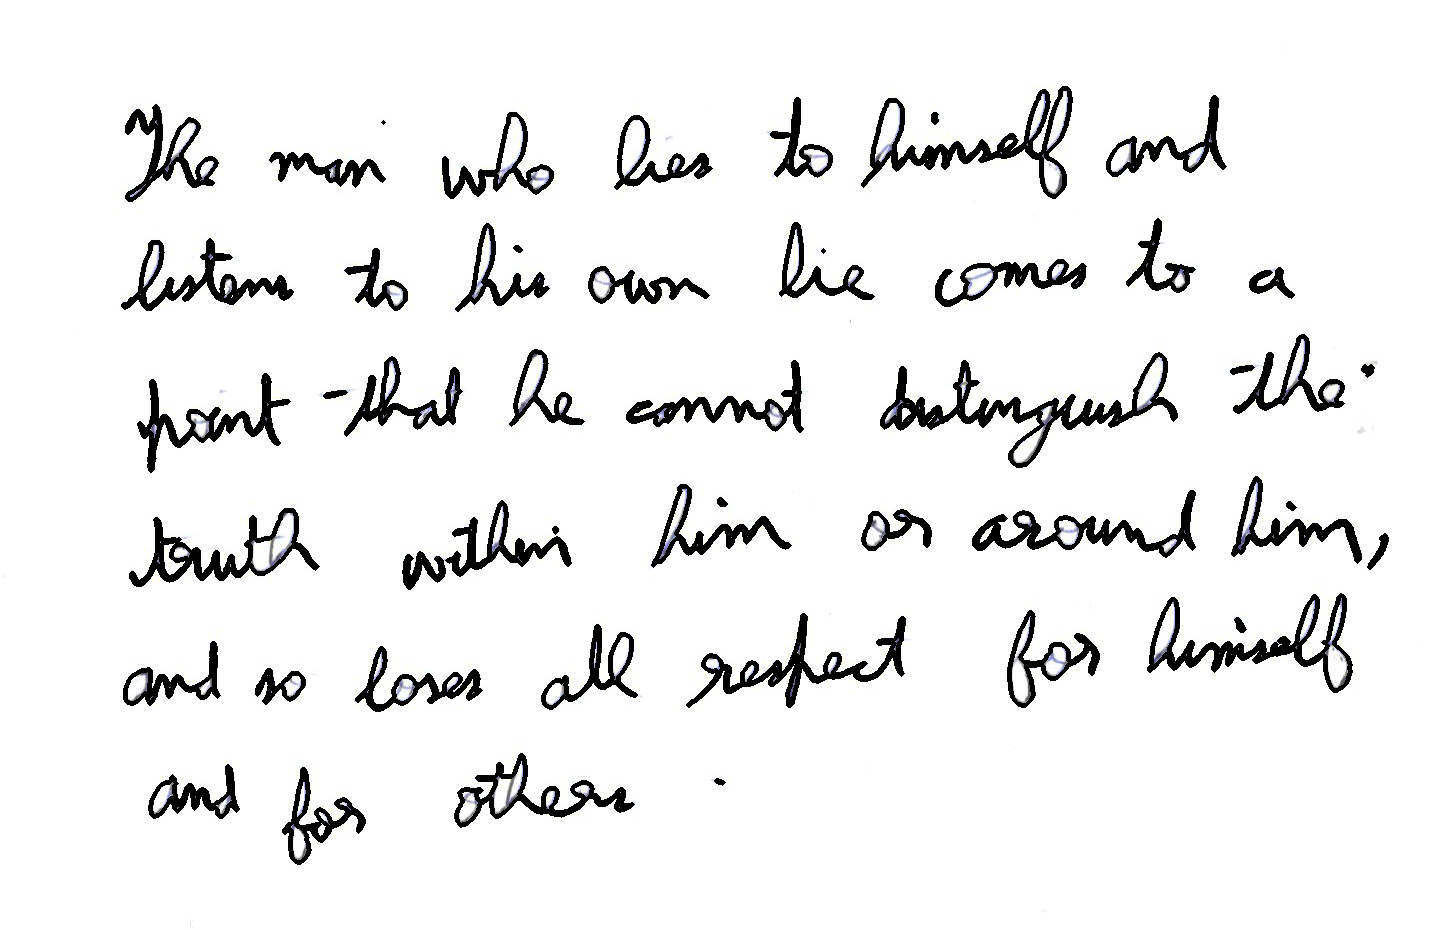 The man who lies to himself and
listens to his own lie comes to a
point that he cannot distinguish the
truth within him or around him,
and so loses all respect for himself
and for others.